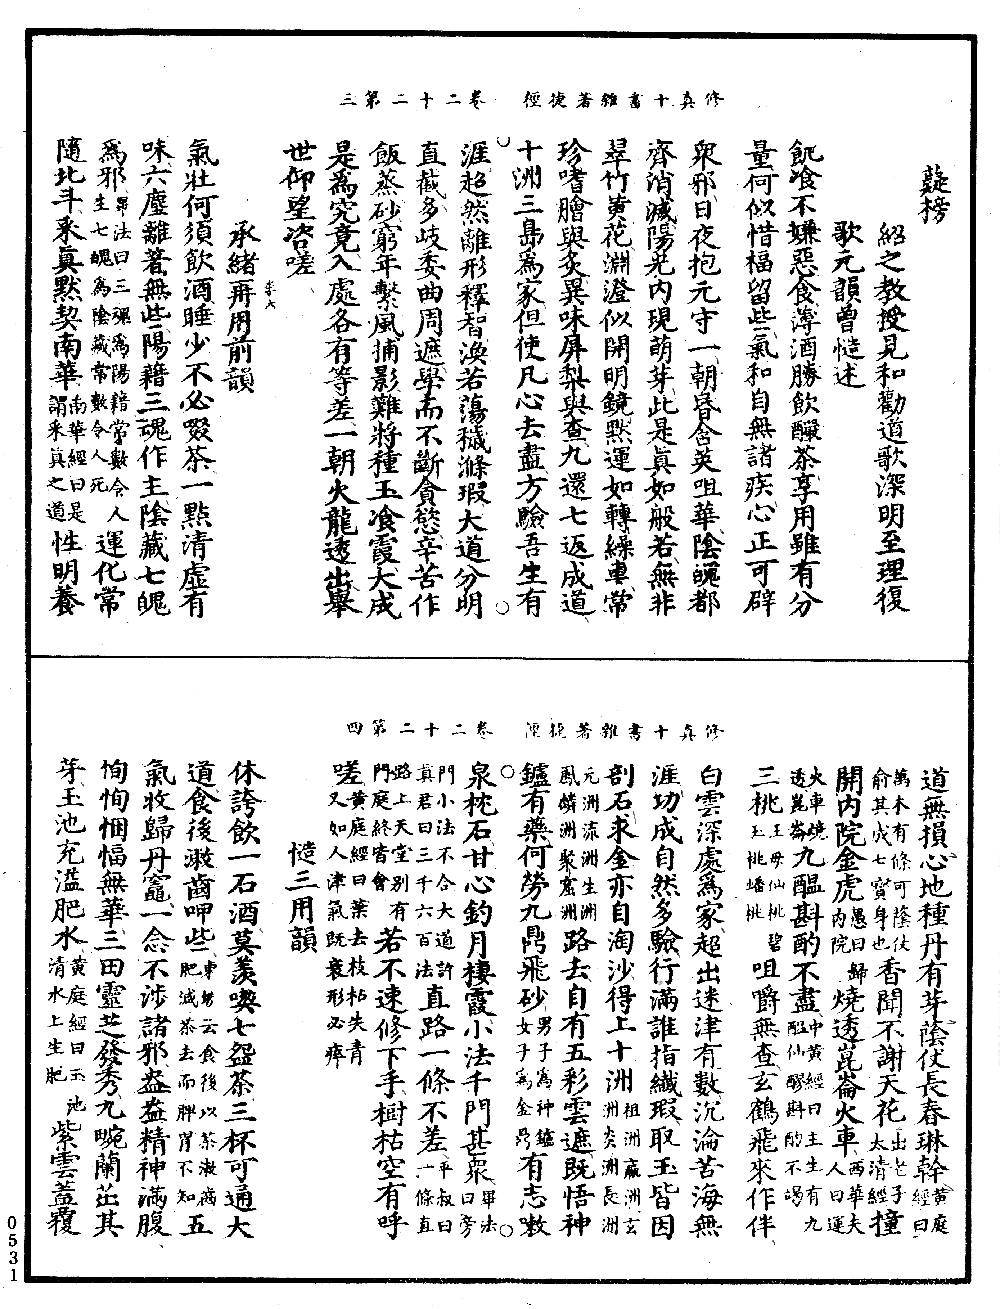 修真十書雜著捷徑　卷二十二第三
疑榜
紹之教授見和勸道歌深明至理復
歌元韻曾慥述
飢飡不嫌惡食薄酒勝飲釅茶享用雖有分
量何似惜福留些氣和自無諸疾心正可辟
衆邪日夜抱元守一朝昏含英咀華陰魄都
齊消滅陽光內現萌芽此是眞如般若無非
翠竹黄花淵澄似開明鏡默運如轉繰車常
珍嗜膾與炙異味屏梨與查九還七返成道
十洲三島爲家但使凡心去盡方驗吾生有
涯超然離形釋智渙若蕩穢滌瑕大道分明
直截多岐委曲周遮學而不斷貪慾辛苦作
飯蒸砂窮年繫風捕影難將種玉飡霞大成
是爲究竟入處各有等差一朝火龍透出舉
世仰望咨嗟
承緒再用前韻
氣壯何須飲酒睡少不必啜茶一點清虛有
味六塵離著無些陽籍三魂作主陰藏七魄
爲邪畢法曰三魂爲陽籍常數令人生七魄爲陰藏常數令人死運化常
隨北斗采眞默契南華南華經曰是謂采真之道性明養
修真十書雜著捷徑　卷二十二第四
道無損心地種丹有芽蔭仗長春琳幹黃庭經曰
萬本有條可蔭仗俞其成七寶身也香聞不謝天花出老子太清經撞
開內院金虎愚曰歸內院燒透崑崙火車西華夫人曰運
火車燒透崑崙九醞斟酌不盡中黃經曰主生有九醞仙醪斟酌不竭
三桃王母仙桃碧玉桃蟠桃咀嚼無查玄鶴飛來作伴
白雲深處爲家超出迷津有數沉淪苦海無
涯功成自然多驗行滿誰指纖瑕取玉皆因
剖石求金亦自淘沙得上十洲祖洲瀛洲玄洲炎洲長洲
元洲流洲生洲鳳麟洲聚窟洲路去自有五彩雲遮既悟神
鑪有藥何勞九鼎飛砂男子爲神鑪女子爲金鼎有志漱
泉枕石甘心釣月棲霞小法千門甚衆畢法曰旁
門小法不合大道許眞君曰三千六百法直路一條不差平叔曰一條直
路上天堂别有門庭終皆會若不速修下手樹枯空有呼
嗟黃庭經曰葉去枝枯失青又如人津氣既衰形必瘁
慥三用韻
休誇飲一石酒莫羨喫七盌茶三杯可通大
道食後漱齒呷些東坡云食後以茶漱齒肥滅恭去而脾胃不知五
氣收歸丹竈一念不涉諸邪盎盎精神滿腹
恂恂悃愊無華三田靈芝發秀九畹蘭茁其
芽玉池充溢肥水黃庭經曰玉池清水上生肥紫雲蓋覆
0531